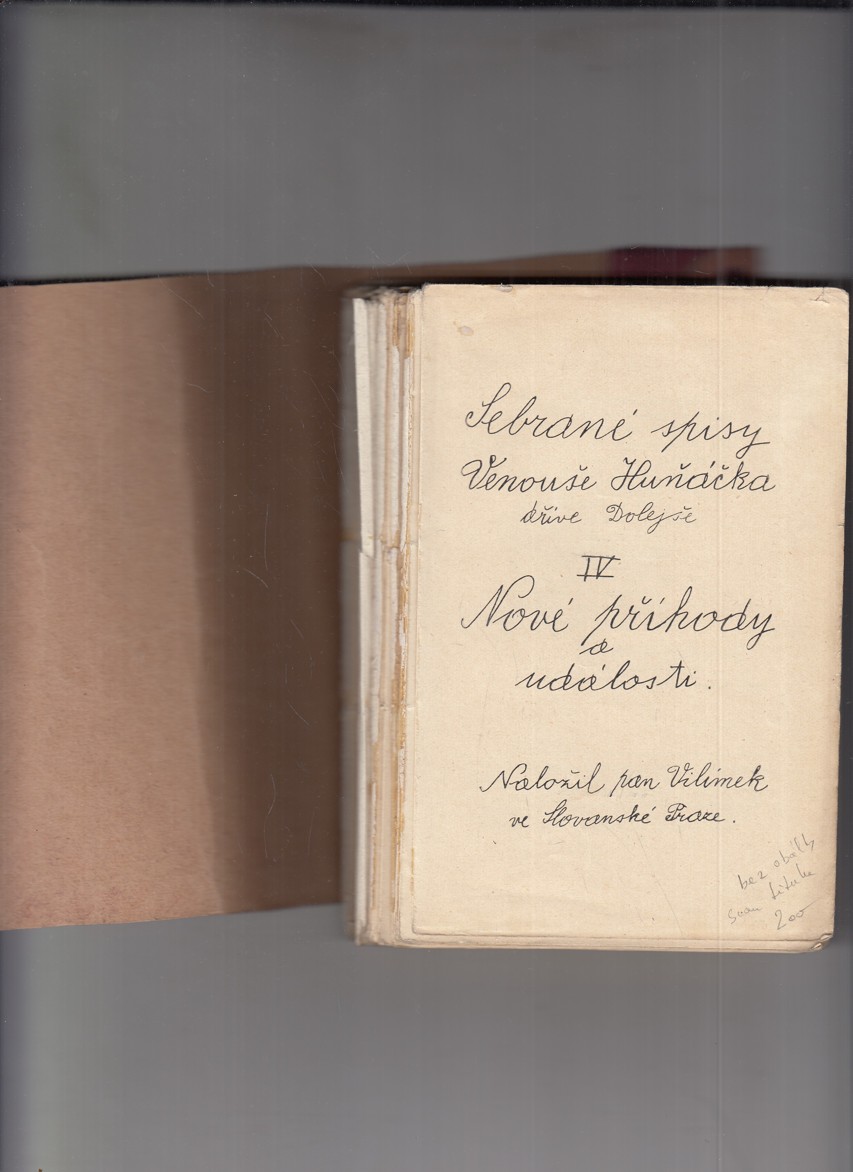 Sebrané spisy
Venouše Huňáčka
dříve Dolejše
IV
Nové příhody
a
události.
Naložil pan Vilímek
ve Slovanské Praze.
bez
titulu
200